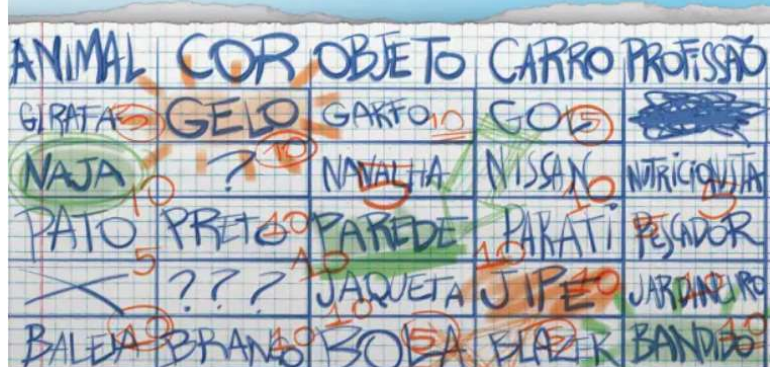 ANIMAL COR OBJETO CARRO PROFISSÃO
GIRAFA 5 GELO 10 GARFO 10 GOL 5
NAJA 10 ? NAVALHA 5 NISSAN 10 NUTRICIONISTA 5
PATO 5 PRETO 10 PAREDE 10 PARATI 10 PESCADOR
??? JAQUETA 10 JIPE 10 JARDINEIRO 10
BALEIA 10 BRANCO 10 BOLA 5 BLAZER 5 BANDIDO 10